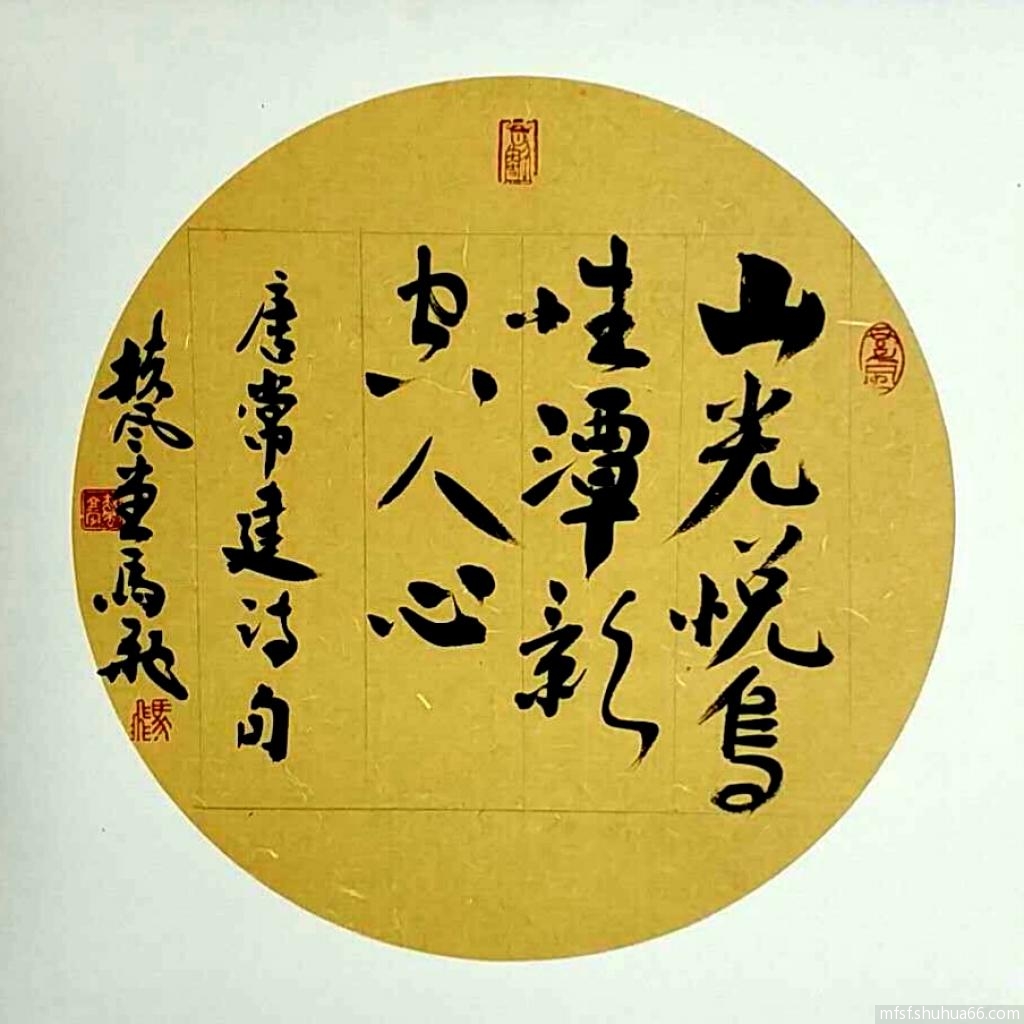 山光悦鸟
性潭影
空人心
唐常建诗句
扶风堂马飞
mfsf.shuhua66.com